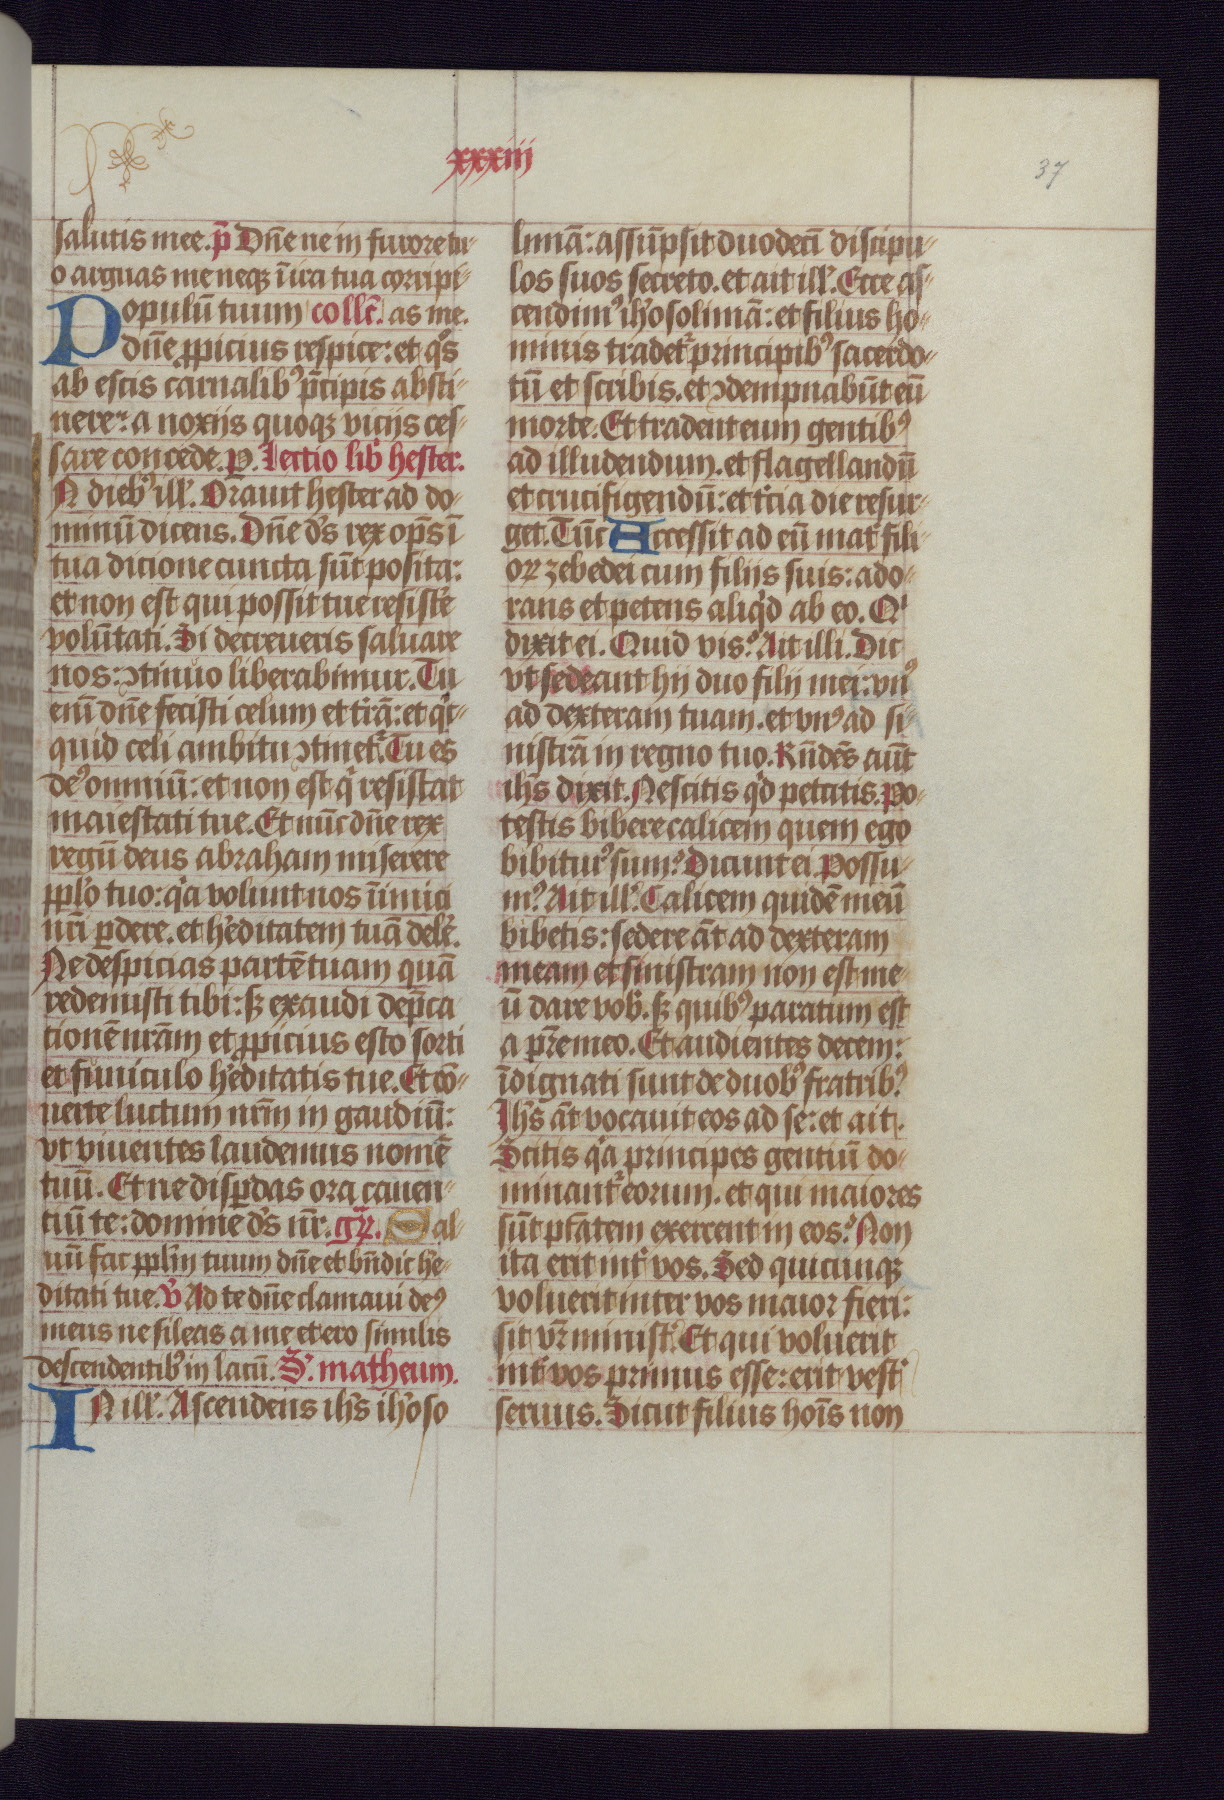 xxxiii
37
salutis mee. p̄ Dn̄e ne in furore tu-
o arguas me neqꝫ ī ira tua corripi-
Populū tuum collc̄. as me.
dn̄e ꝓpicius respice: et q̄s
ab escis carnalibꝰ p̄cipis absti-
nere: a noxiis quoqꝫ viciis ces-
sare concede. p. Lectio lib̄ hester.
N diebꝰ ill'. Orauit hester ad do-
minū dicens. Dn̄e ds̄ rex op̄s ī
tua dicione cuncta sūt posita:
et non est qui possit tue resistē
volūtati. Si decreueris saluare
nos: ꝯtinuo liberabimur. Tu
eni dn̄e fecisti celum et t̄rā: et q̄c-
quid celi ambitu ꝯtinet᷑. Tu es
deꝰ omniū: et non est q̄ resistat
maiestati tue. Et nūc dn̄e rex
regū deus abraham miserere
ppl̄o tuo: q̄a volunt nos īimici
nr̄i ꝑdere. et h̄editatem tuā delē.
Ne despicias partē tuam quā
redemisti tibi: sꝫ exaudi dep̄ca
tionē nrām et ꝓpicius esto sorti
et funiculo h̄editatis tue. Et cō-
uerte luctum nrm̄ in gaudiū:
vt viuentes laudemus nomē
tuū. Et ne disꝑdas ora canen-
tiū te: domine ds̄ nr̄. gr̄. Sal-
uū fac ppl̄m tuum dn̄e et bn̄dic he-
ditati tue. v̄ Ad te dn̄e clamaui deꝰ
meus ne sileas a me et ero similis
descendentibꝰ in lacū. S. matheum.
IN ill'. Ascendens ih̄s ih̄oso
limā: assūpsit duodecī discipu-
los suos secreto. et ait ill'. Ecce as-
cendimꝰ ih̄osolimā: et filius ho-
minis tradet᷑ principibꝰ sacerdo-
tū et scribis. et ꝯdempnabūt eū
morte. Et tradent eum gentibꝰ
ad illudendum. et flagellandū
et crucifigendū: et t̄cia die resur-
get. Tūc Accessit ad eū mat̄ fili-
oꝝ zebedei cum filiis suis: ado-
rans et petens aliq̄d ab eo. Qi
dixit ei. Quid vis? Ait illi. Dic
vt sedeant hii duo filii mei: vnꝰ
ad dexteram tuam. et vnꝰ ad si-
nistrā in regno tuo. Rn̄dēs aūt
ih̄s dixit. Nescitis q̄d petatis. Po-
testis bibere calicem quem ego
bibiturꝰ sum? Dicunt ei. Possu-
mꝰ. Ait ill'. Calicem quidē meū
bibetis: sedere āt ad dexteram
meam et sinistram non est me-
ū dare vob̄. sꝫ quibꝰ paratum est
a pr̄e meo. Et audientes decem:
īdignati sunt de duobꝰ fratribꝰ.
Ih̄s āt vocauit eos ad se: et ait.
Scitis q̄a principes gentiū do-
minant᷑ eorum. et qui maiores
sūt pt̄atem exercent in eos? Non
ita erit int̄ vos. Sed quicunqꝫ
voluerit inter vos maior fieri:
sit vr̄ minist̄. Et qui voluerit
int̄ vos primus esse: erit vest̄
seruus. Sicut filius hoīs non